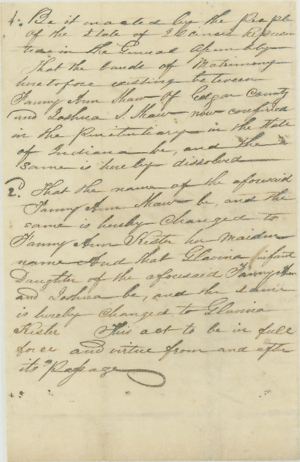 1. Be it enacted by the People
of the State of Illinois represen
ted in the General Assembly
That the bands of Matrimony
heretofore existing between
Fanny Ann Shaw of Edgar County
and Joshua S. Shaw now confined
in the Penitentiary in the State
of Indiana be, and the
same is hereby dissolved
2. That the name of the aforesaid
Fanny Ann Shaw be, and the
same is hereby Changed to
Fanny Ann Kester her Maiden
name And that Glavina infant
Daughter of the aforesaid Fanny A
and Joshua be, and the same
is hereby changed to Glavina
Kester This act to be in full
force and virtue from and after
its Passage